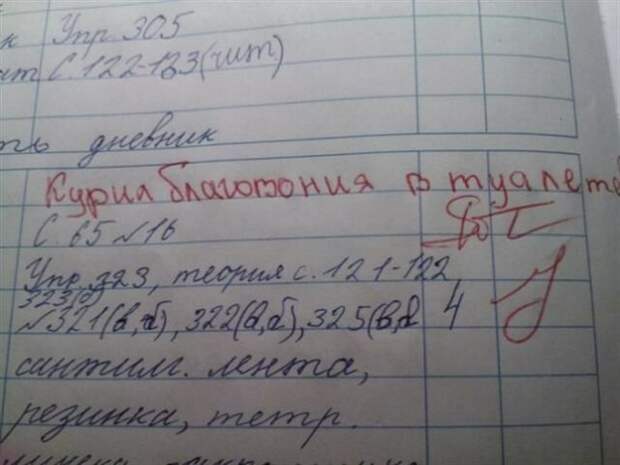 к Упр. 305
ит С. 122-123(чит.)
ть дневник
Курил благовония в туалете
С. 65 №16
Упр. 323, теория с. 121-122
323(б)
№321(в,б), 322(а,б), 325(в, 4
сантим. лента,
резинка, тетр.